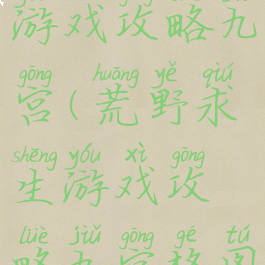 游戏攻略九
gōng huāng yě qiú
宫(荒野求
shēng yóu xì gōng
生游戏攻
lüè jiǔ gōng gé tú
略九宫格图